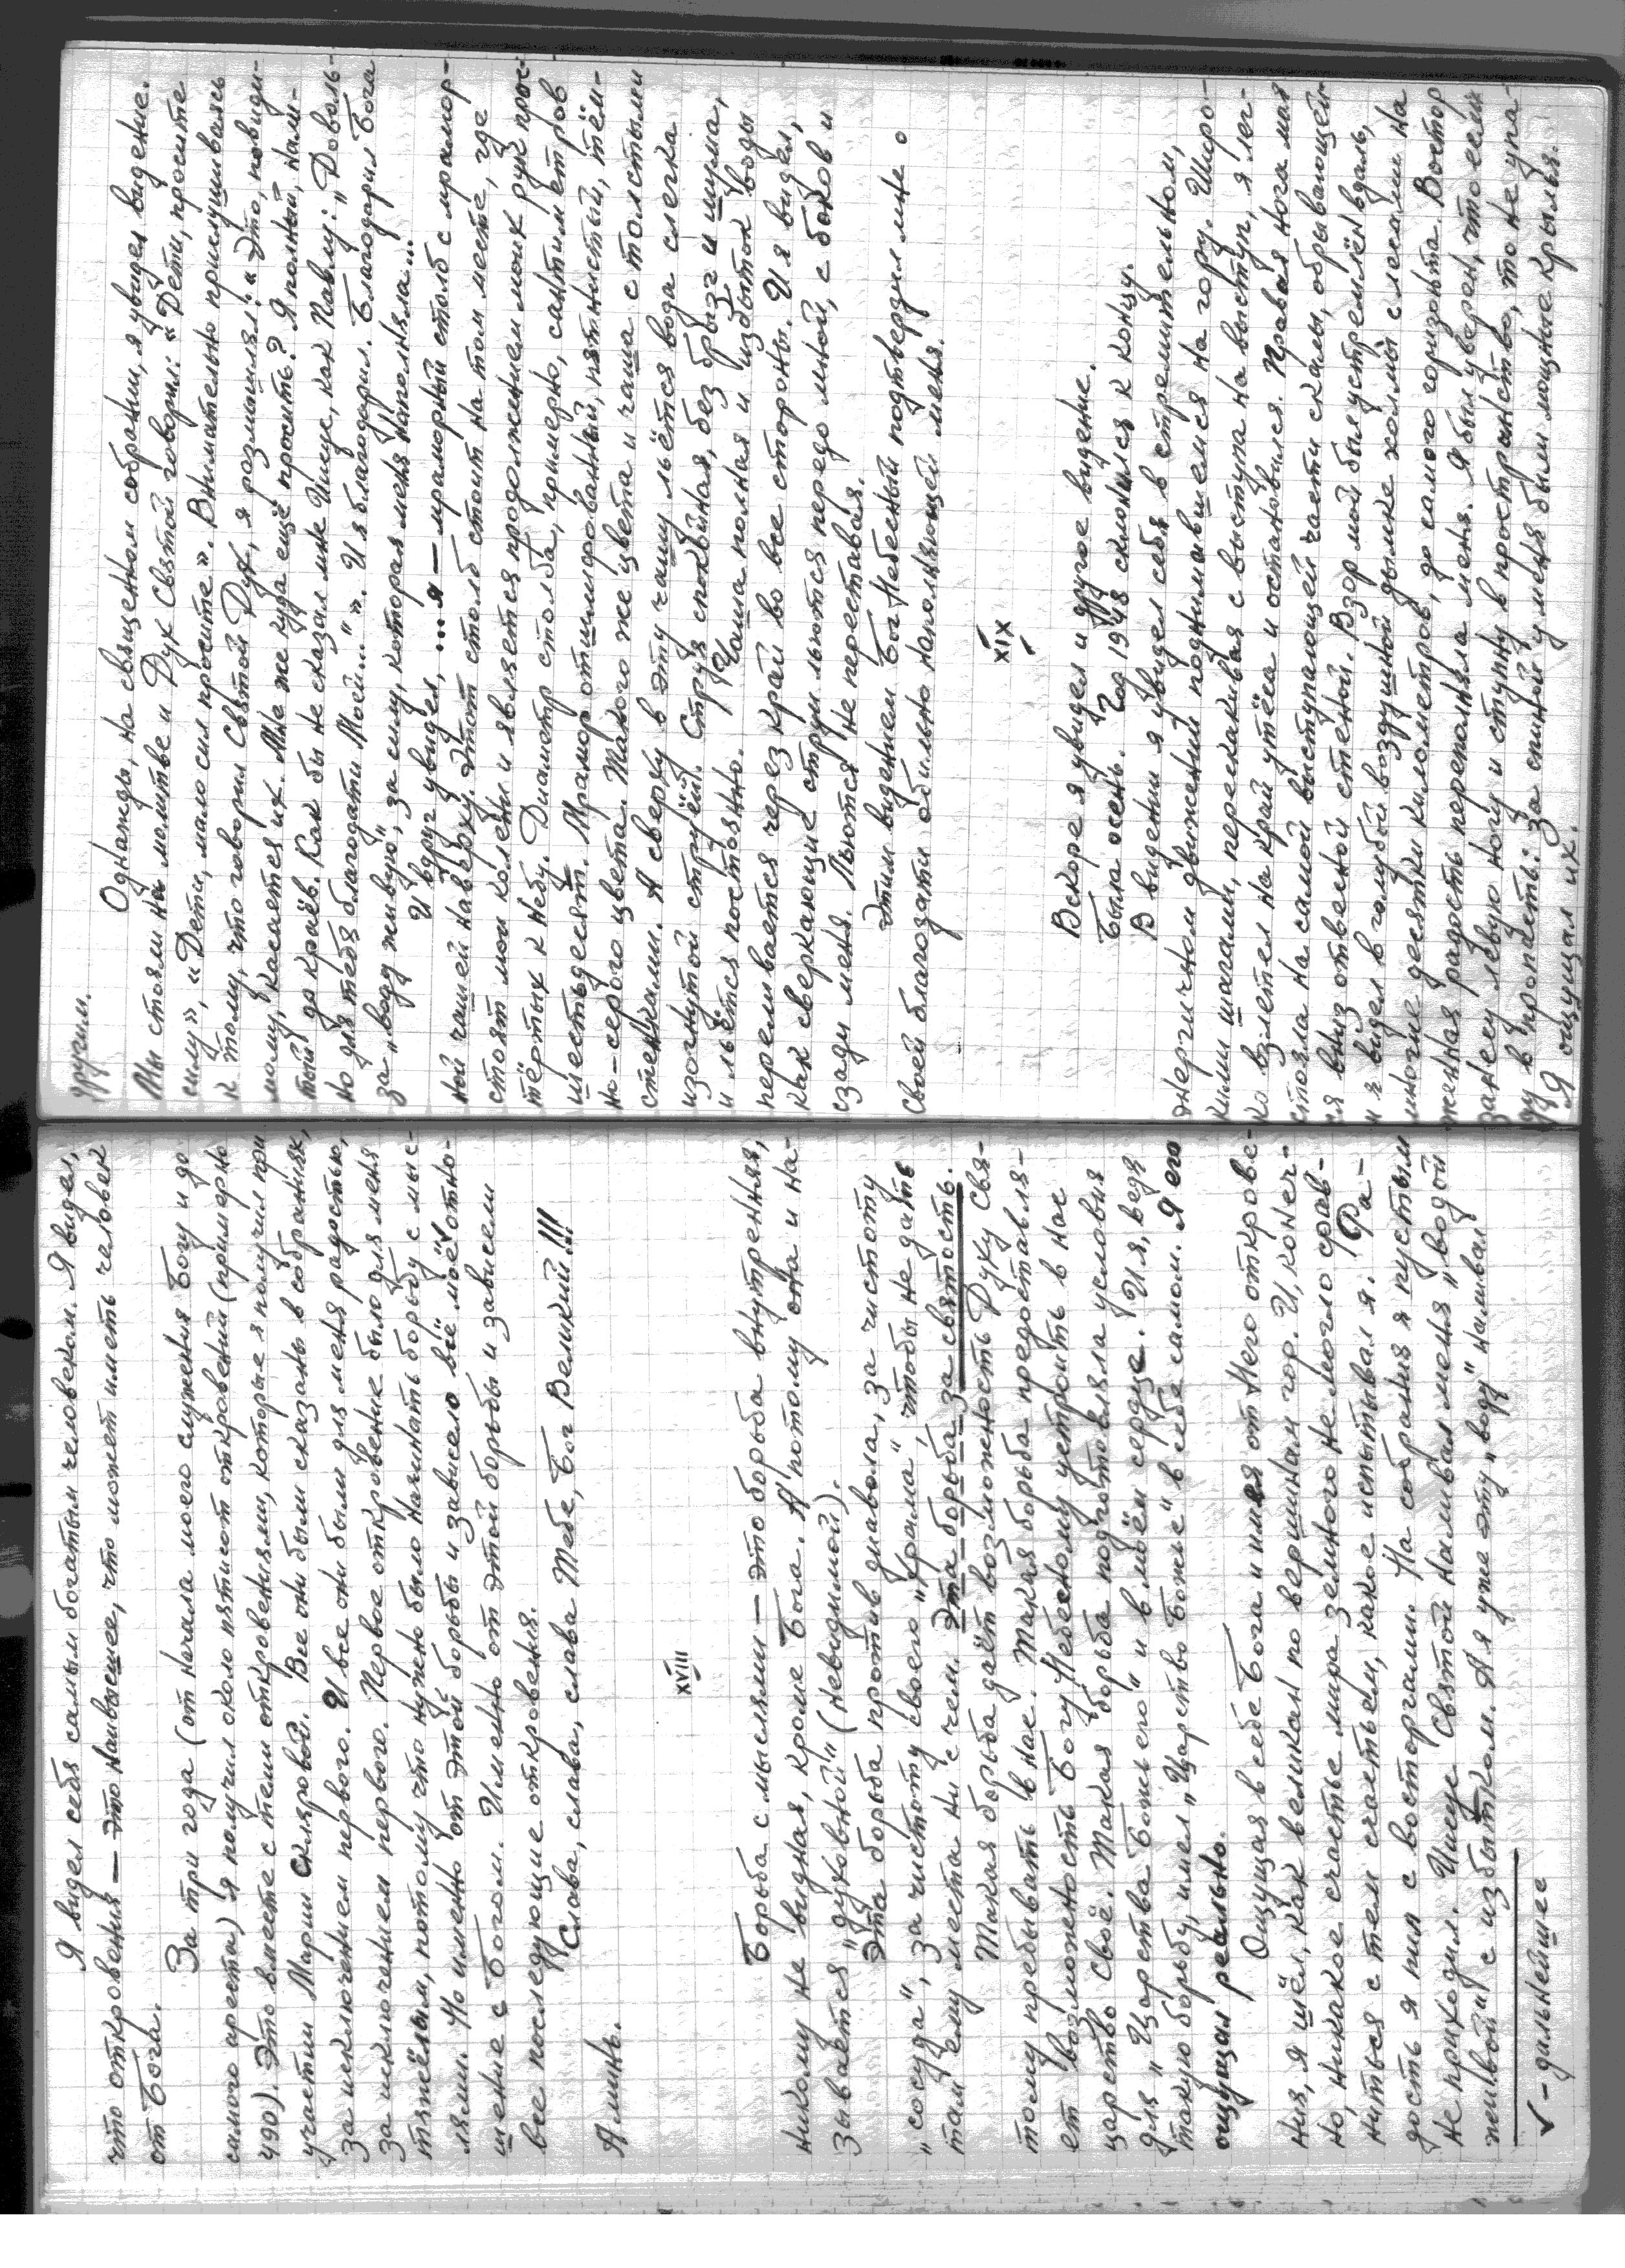 Я видел себя самым богатым человеком. Я видел,
что откровения — это наивысшее, что может иметь человек
от Бога.
За три года (от начала моего служения Богу и до
самого ареста) я получил около пятисот откровений (примерно
490). Это вместе с теми откровениями, которые я получил при
участии Марии Скляровой. Все они были сказаны в собраниях,
за исключением первого. И все они были для меня радостью,
за исключением первого. Первое откровение было для меня
тяжёлым, потому что нужно было начинать борьбу с мыс-
лями. Но именно от этой борьбы и зависело всё моё ✓ отно-
шение с Богом. Именно от этой борьбы и зависели
все последующие откровения.
Слава, слава, слава Тебе, Бог Великий!!!
Аминь.
XVIII
Борьба с мыслями — это борьба внутренняя,
никому не видная, кроме Бога. А потому она и на-
зывается „духовной" (невидимой).
Эта борьба против диавола, за чистоту
„сосуда", за чистоту своего „храма", чтобы не дать
там ему места ни в чем. Эта борьба за святость.
Такая борьба даёт возможность Духу Свя-
тому пребывать в нас. Такая борьба предоставля-
ет возможность Богу Небесному устроить в нас
царство Своё. Такая борьба подготовляла условия
для „Царства Божьего" и в моём сердце. И я, ведя
такую борьбу, имел „Царство Божье" в себе самом. Я его
ощущал реально.
Ощущая в себе Бога и имея от Него открове-
ния, я шёл, как великан по вершинам гор. И, конеч-
но, никакое счастье мира земного не могло срав-
ниться с тем счастьем, какое испытывал я. Ра-
дость я пил с восторгами. На собрания я пустым
не приходил. Иисус Святой наливал меня „водой
живой" с избытком. А я уже эту „воду" наливал
✓ - дальнейшее
другим.
Однажды, на священном собрании, я увидел видение.
Мы стояли на молитве и Дух Святой говорил: «Дети, просите
силу», «Дети, мало сил просите». Внимательно прислушиваясь
к тому, что говорил Святой Дух, я размышлял: «Это, повиди-
мому, касается их. Мне же куда ещё просить? Я полный, нали-
тый до краёв. Как бы не сказал мне Иисус, как Павлу: „Доволь-
но для тебя благодати Моей..."». И я благодарил. Благодарил Бога
за „воду живую", за силу, которая меня наполняла...
И вдруг увидел, ... я — мраморный столб с мрамор-
ной чашей наверху. Этот столб стоит на том месте, где
стоят мои колени и является продолжением моих рук прос-
тёртых к небу. Диаметр столба, примерно, сантиметров
шестьдесят. Мрамор отшлифованный, пятнистый, тём-
но-серого цвета. Такого же цвета и чаша с толстыми
стенками. А сверху в эту чашу льётся вода слегка
изогнутой струёй. Струя спокойная, без брызг и шума,
и льётся постоянно. Чаша полная и избыток воды
переливается через край во все стороны. И я видел,
как сверкающие струи льются передо мной, с боков и
сзади меня. Льются не переставая.
Этим видением Бог Небесный подтвердил мне о
своей благодати обильно наполняющей меня.
XIX
Вскоре я увидел и другое видение.
Была осень. Год 1948 склонился к концу.
В видении я увидел себя в стремительном,
энергичном движении поднимавшемся на гору. Широ-
кими шагами, перескакивая с выступа на выступ, я лег-
ко взлетел на край утёса и остановился. Правая нога моя
стояла на самой выступающей части скалы, обрывающей-
ся вниз отвесной стеной. Взор мой был устремлён вдаль,
и я видел в голубой воздушной дымке холмы с лесами на
многие десятки километров, до самого горизонта. Востор
женная радость переполняла меня. Я был уверен, что если
занесу левую ногу и ступлю в пространство, то не упа-
ду в пропасть: за спиной у меня были мощные крылья.
Я ощущал их.